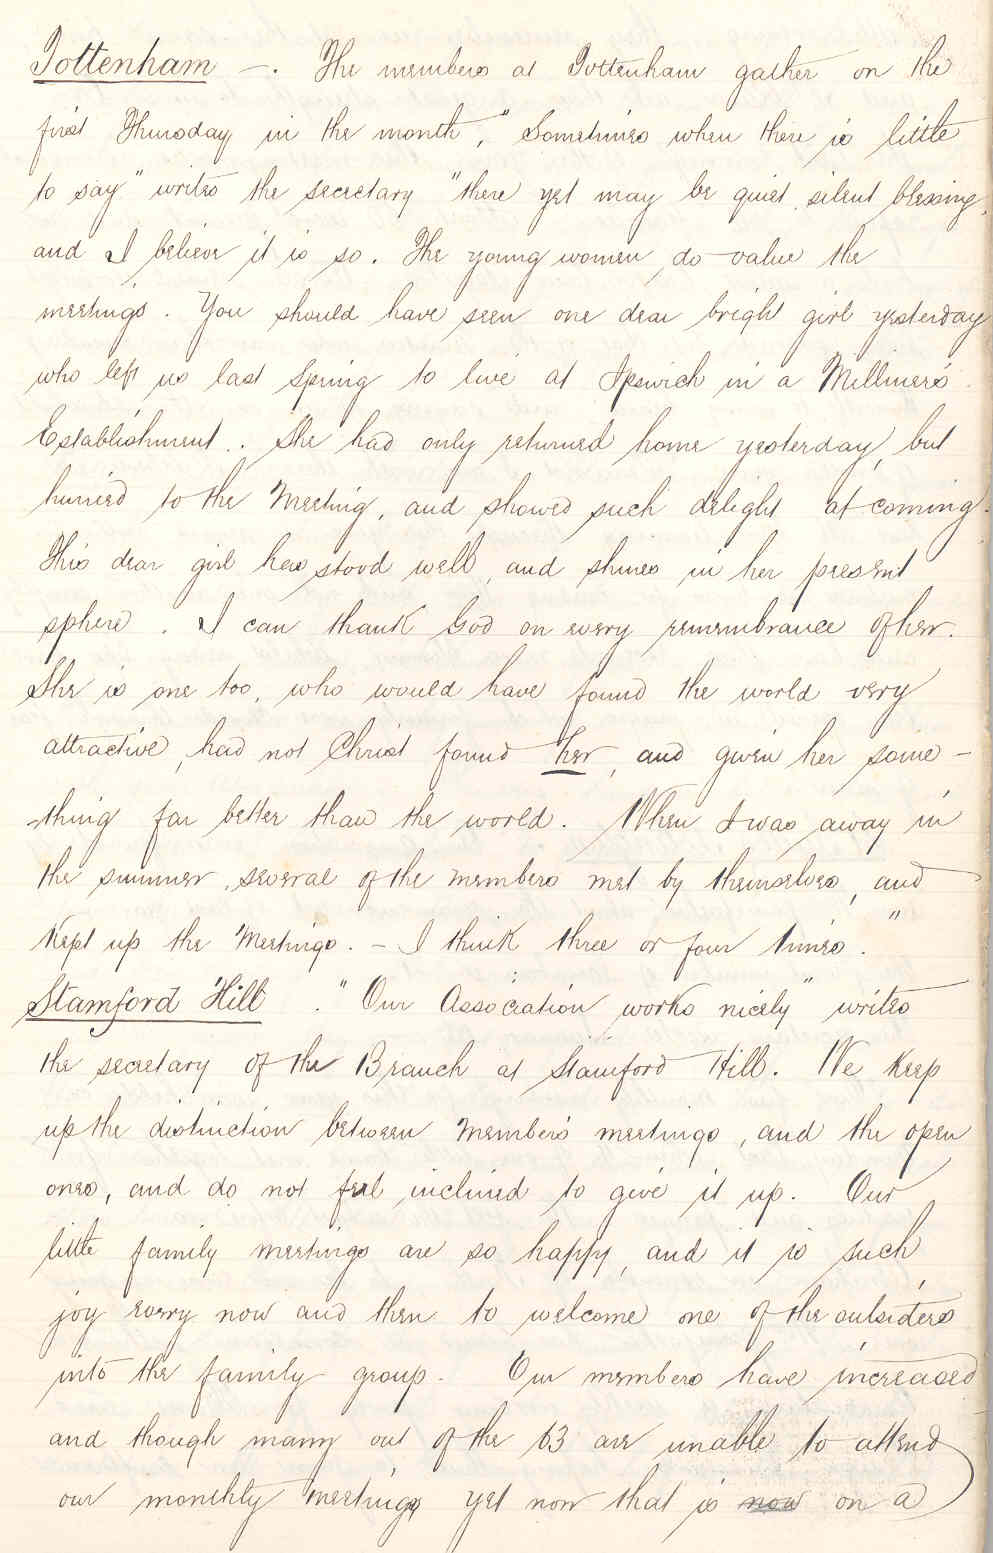 Tottenham —. The members at Tottenham gather on the
first Thursday in the month, "Sometimes when there is little
to say" writes the secretary "there yet may be quiet silent blessing,
and I believe it is so. The young women do value the
meetings. You should have seen one dear bright girl yesterday
who left us last Spring to live at Ipswich in a Milliner's
Establishment. She had only returned home yesterday, but
hurried to the Meeting, and showed such delight at coming.
This dear girl has stood well, and shines in her present
sphere. I can thank God on every remembrance of her.
She is one too, who would have found the world very
attractive, had not Christ found her, and given her some-
thing far better than the world. When I was away in
the summer, several of the members met by themselves, and
kept up the Meetings. - I think three or four times."
Stamford Hill. "Our Association works nicely" writes
the secretary of the Branch at Stamford Hill. We keep
up the distinction between Members meetings, and the open
ones, and do not feel inclined to give it up. Our
little family meetings are so happy, and it is such
joy every now and then to welcome one of the outsiders
into the family group. Our members have increased
and though many out of the 63 are unable to attend
our monthly Meetings yet now that is now on a